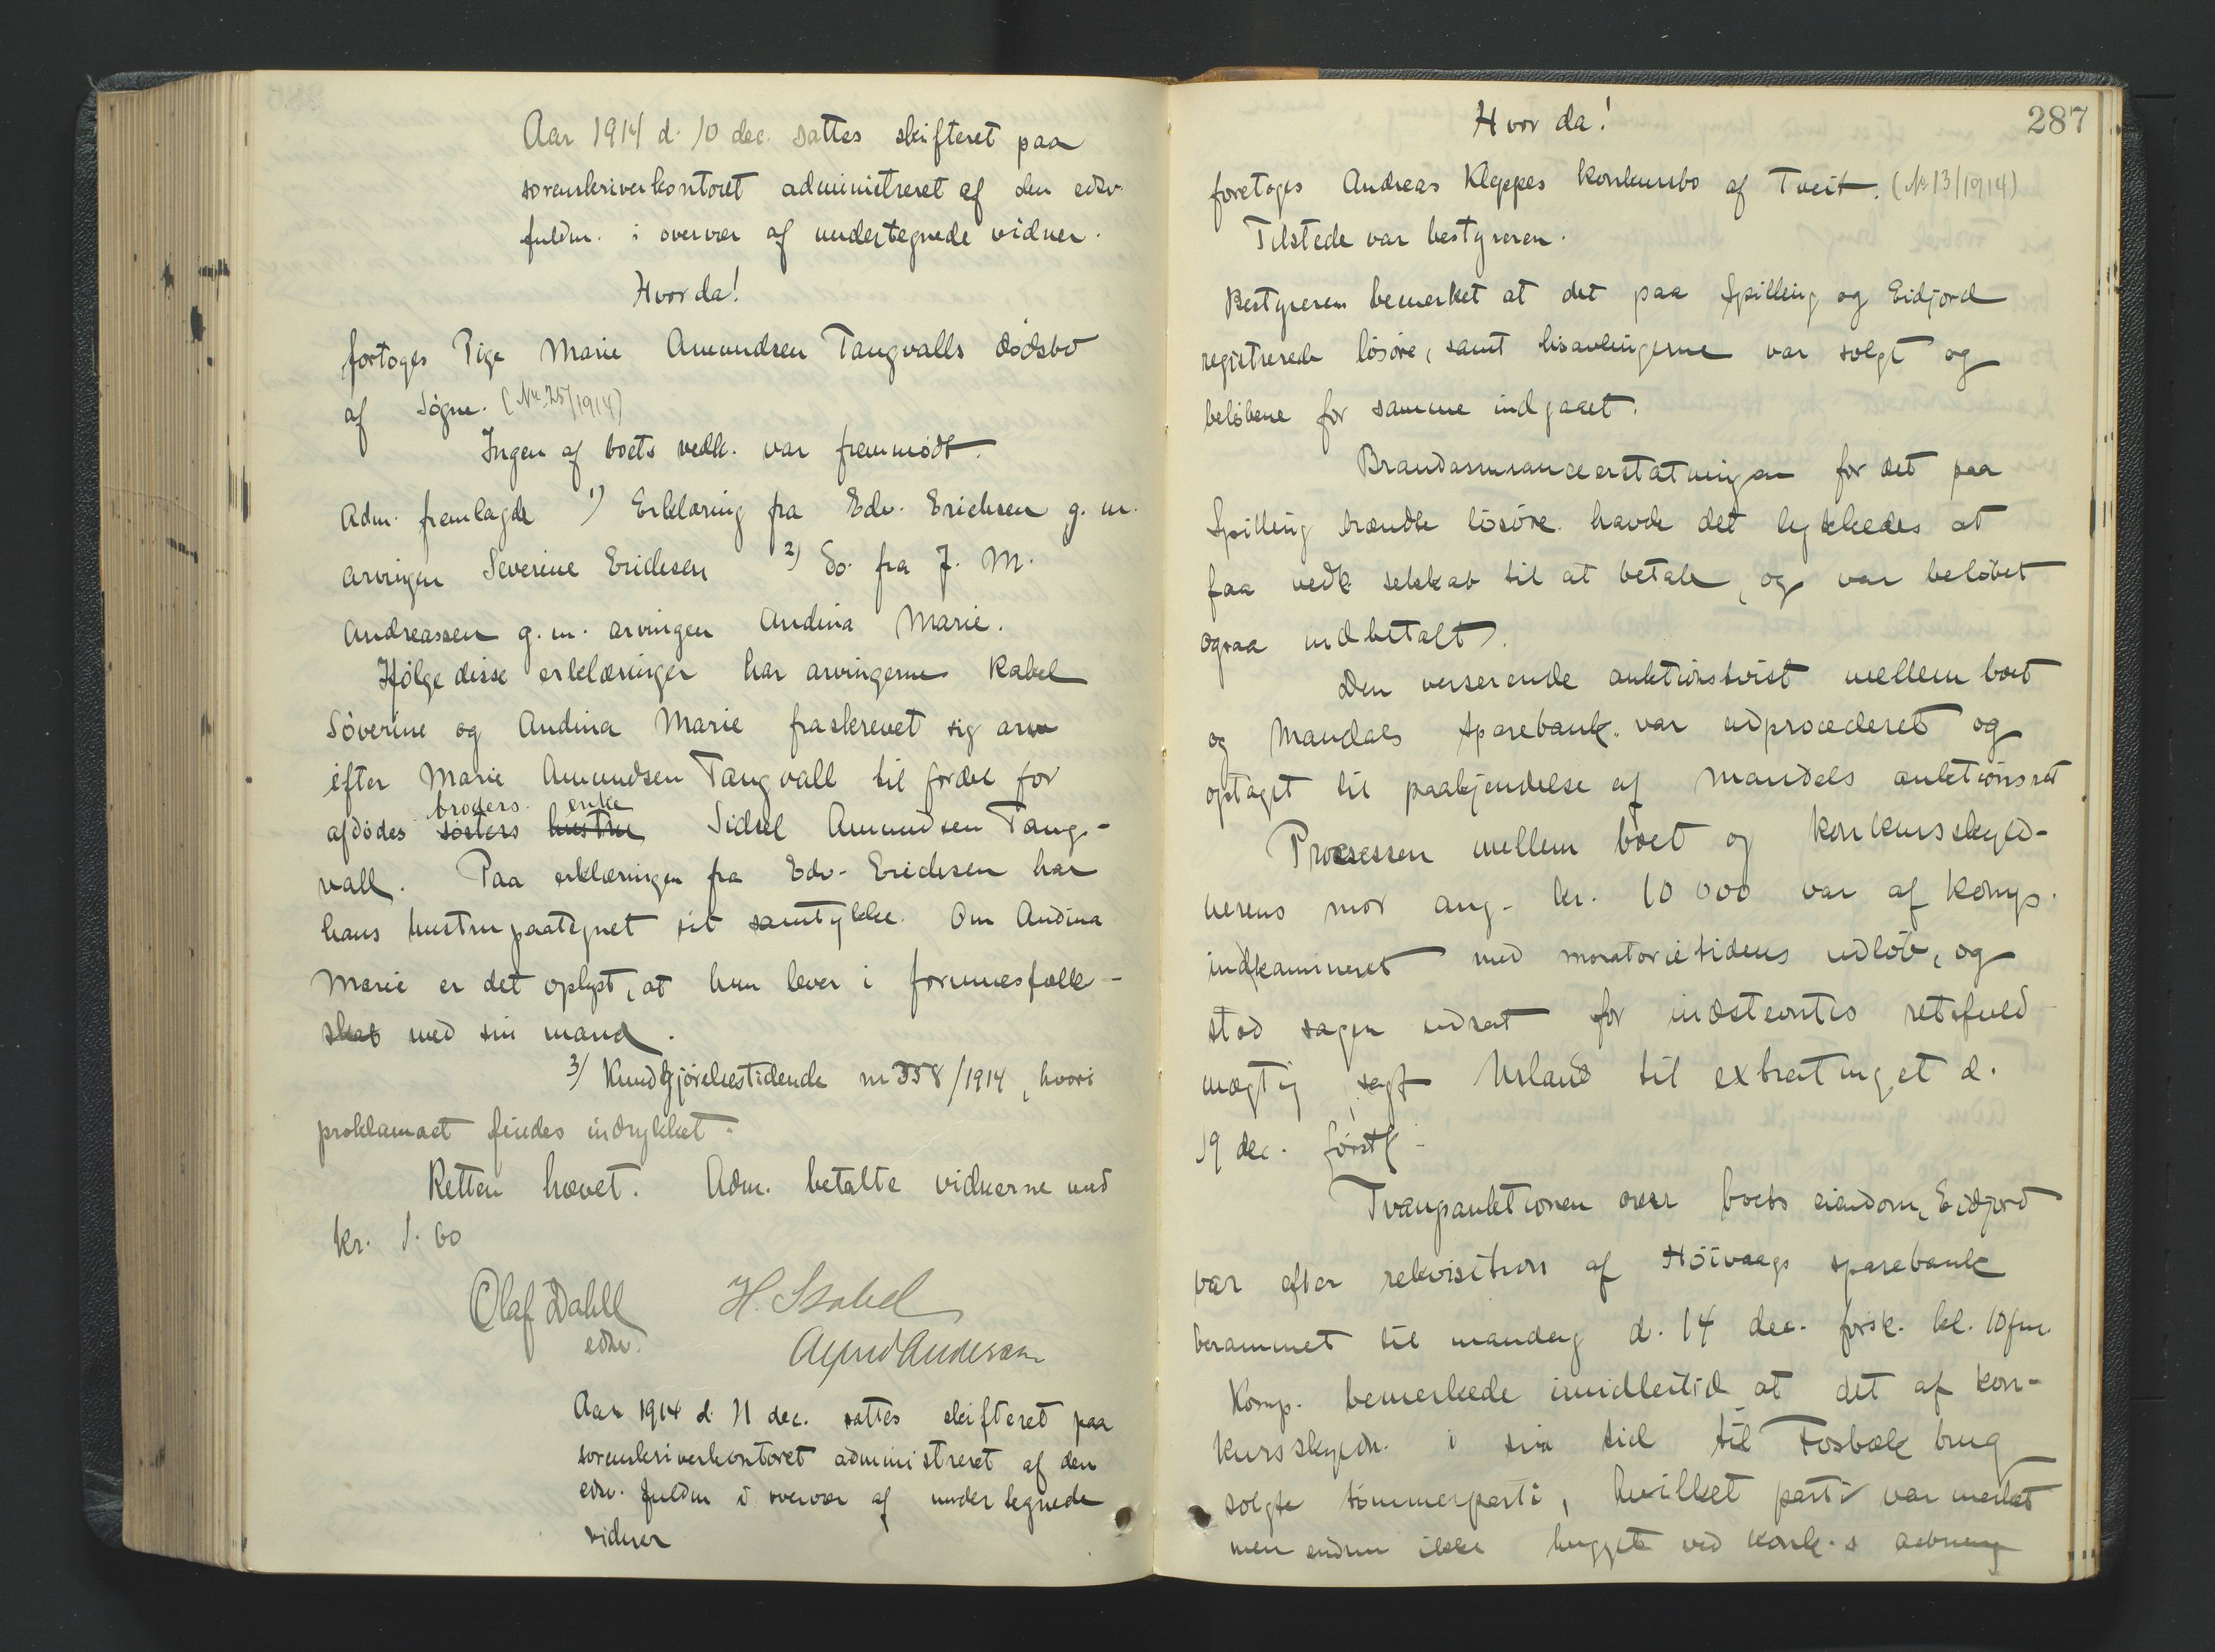 Aar 1914 d. 10 dec. sattes skifteret paa
sorenskriverkontoret administreret af den edsv.
fuldm. i overvær af undertegnede vidner.
Hvorda!
fortoges Pige Marie Amundsen Tangvalls dødsbo
af Søgne. (Nr. 25/1914)
Ingen af boets vedk. var fremmødt.
Adm. fremlagde 1) Erklæring fra Edv. Erichsen g. m.
arvingen Severine Erichsen 2) Do. fra J. M.
Andreassen g. m. arvingen Andina Marie.
Ifølge disse erklæringer har arvingerne Rakel
Søverine og Andina Marie fraskrevet sig arv
efter Marie Amundsen Tangvall til fordel for
broders enke
afdødes søsters hustru Sidsel Amundsen Tang-
vall. Paa erklæringen fra Edv. Erichsen har
hans hustru paategnet sit samtykke. Om Andina
Marie er det oplyst, at hun lever i formuesfælle-
skab med sin mand.
3/ Kundgjørelsestidende nr 358/1914, hvori
proklamaet findes indrykket.
Retten hævet. Adm. betalte vidnerne med
kr. 1.60
Olaf Dahll H. Isabel
edsv. Alfred Andersen
Aar 1914 d. 11 dec. sattes skifteret paa
sorenskriverkontoret administreret af den
edsv. fuldm i overvær af undertegnede
vidner
287
Hvor da!
foretoges Andreas Kleppes konkursbo af Tveit. (Nr 13/1914)
Tilstede var bestyreren.
Bestyreren bemerket at det paa Spilling og Eidjord
registrerede løsøre, samt hisavlingerne var solgt og
beløbene for samme indgaaet.
Brandassuranceerstatningen for det paa
Spilling brændte løsøre havde det lykkedes at
faa vedk selskab til at betale, og var beløbet
ogsaa indbetalt.
Den verserende auktionstvist mellem boet
og Mandals Sparebank var udprocederet og
optaget til paakjendelse af Mandals auktionsret
Processen mellem boet og konkursskyld-
nerens mor ang. kr. 10 000 var af komp.
indkamineret med moratorietidens udløb, og
stod sagen udsat for indstevntes retsfuld
mægtig, sagf Usland til extratinget d.
19 dec. førstk.
Tvangsauktionen over boets eiendom, Eidjord
var efter rekvisition af Høivaags sparebank
berammet til mandag d. 14 dec. førstk. kl. 10 fm.
Komp. bemerkede imidlertid at det af kon-
kursskyldn. i sin tid til Fosbæk brug
solgte tømmerparti, hvilket parti var merket
men endnu ikke hugget ved konk.s aabning